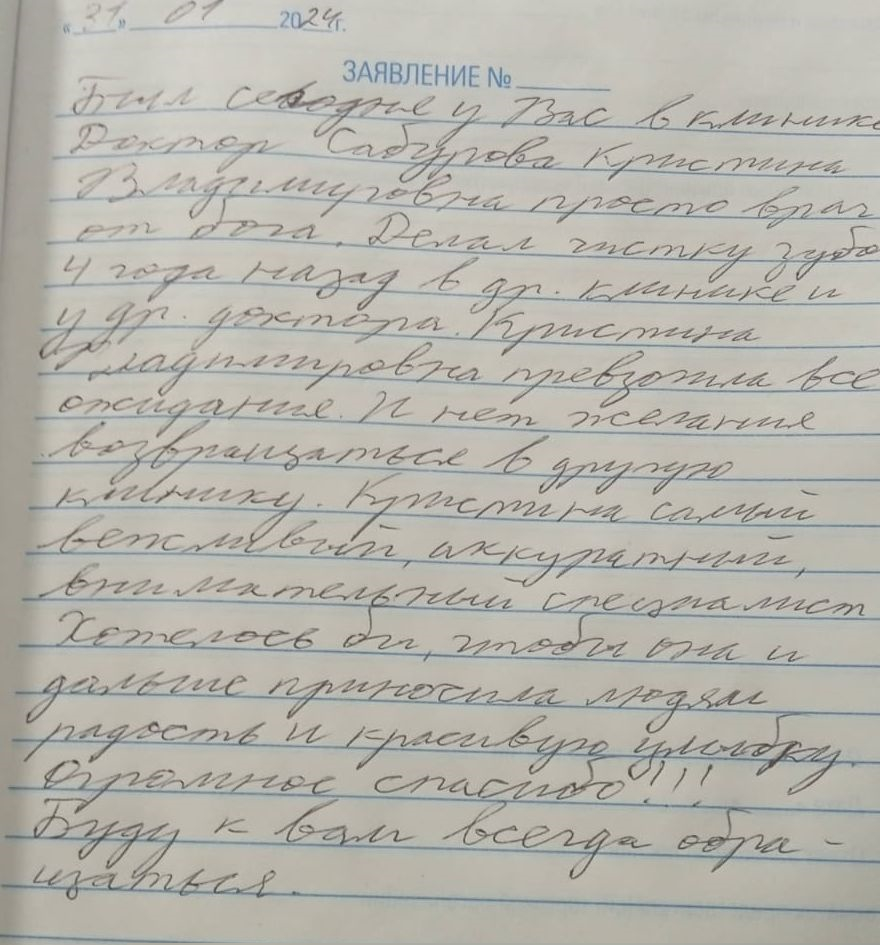 « 31 » 01 2024 г.
ЗАЯВЛЕНИЕ № ______
Был севодне у Вас в клинике
Доктор Сабурова Кристина
Владимировна просто врач
от бога. Делал чистку зубо
4 года назад в др. клинике и
у др. доктора. Кристина
Владимировна превзошла все
ожидания. И нет желания
возвращаться в другую
клинику. Кристина самый
вежливый, аккуратный,
внимательный специалист
Хотелось бы, чтобы она и
дальше приносила людям
радость и красивую улыбку.
Огромное спасибо!!!
Буду к вам всегда обра-
щаться.